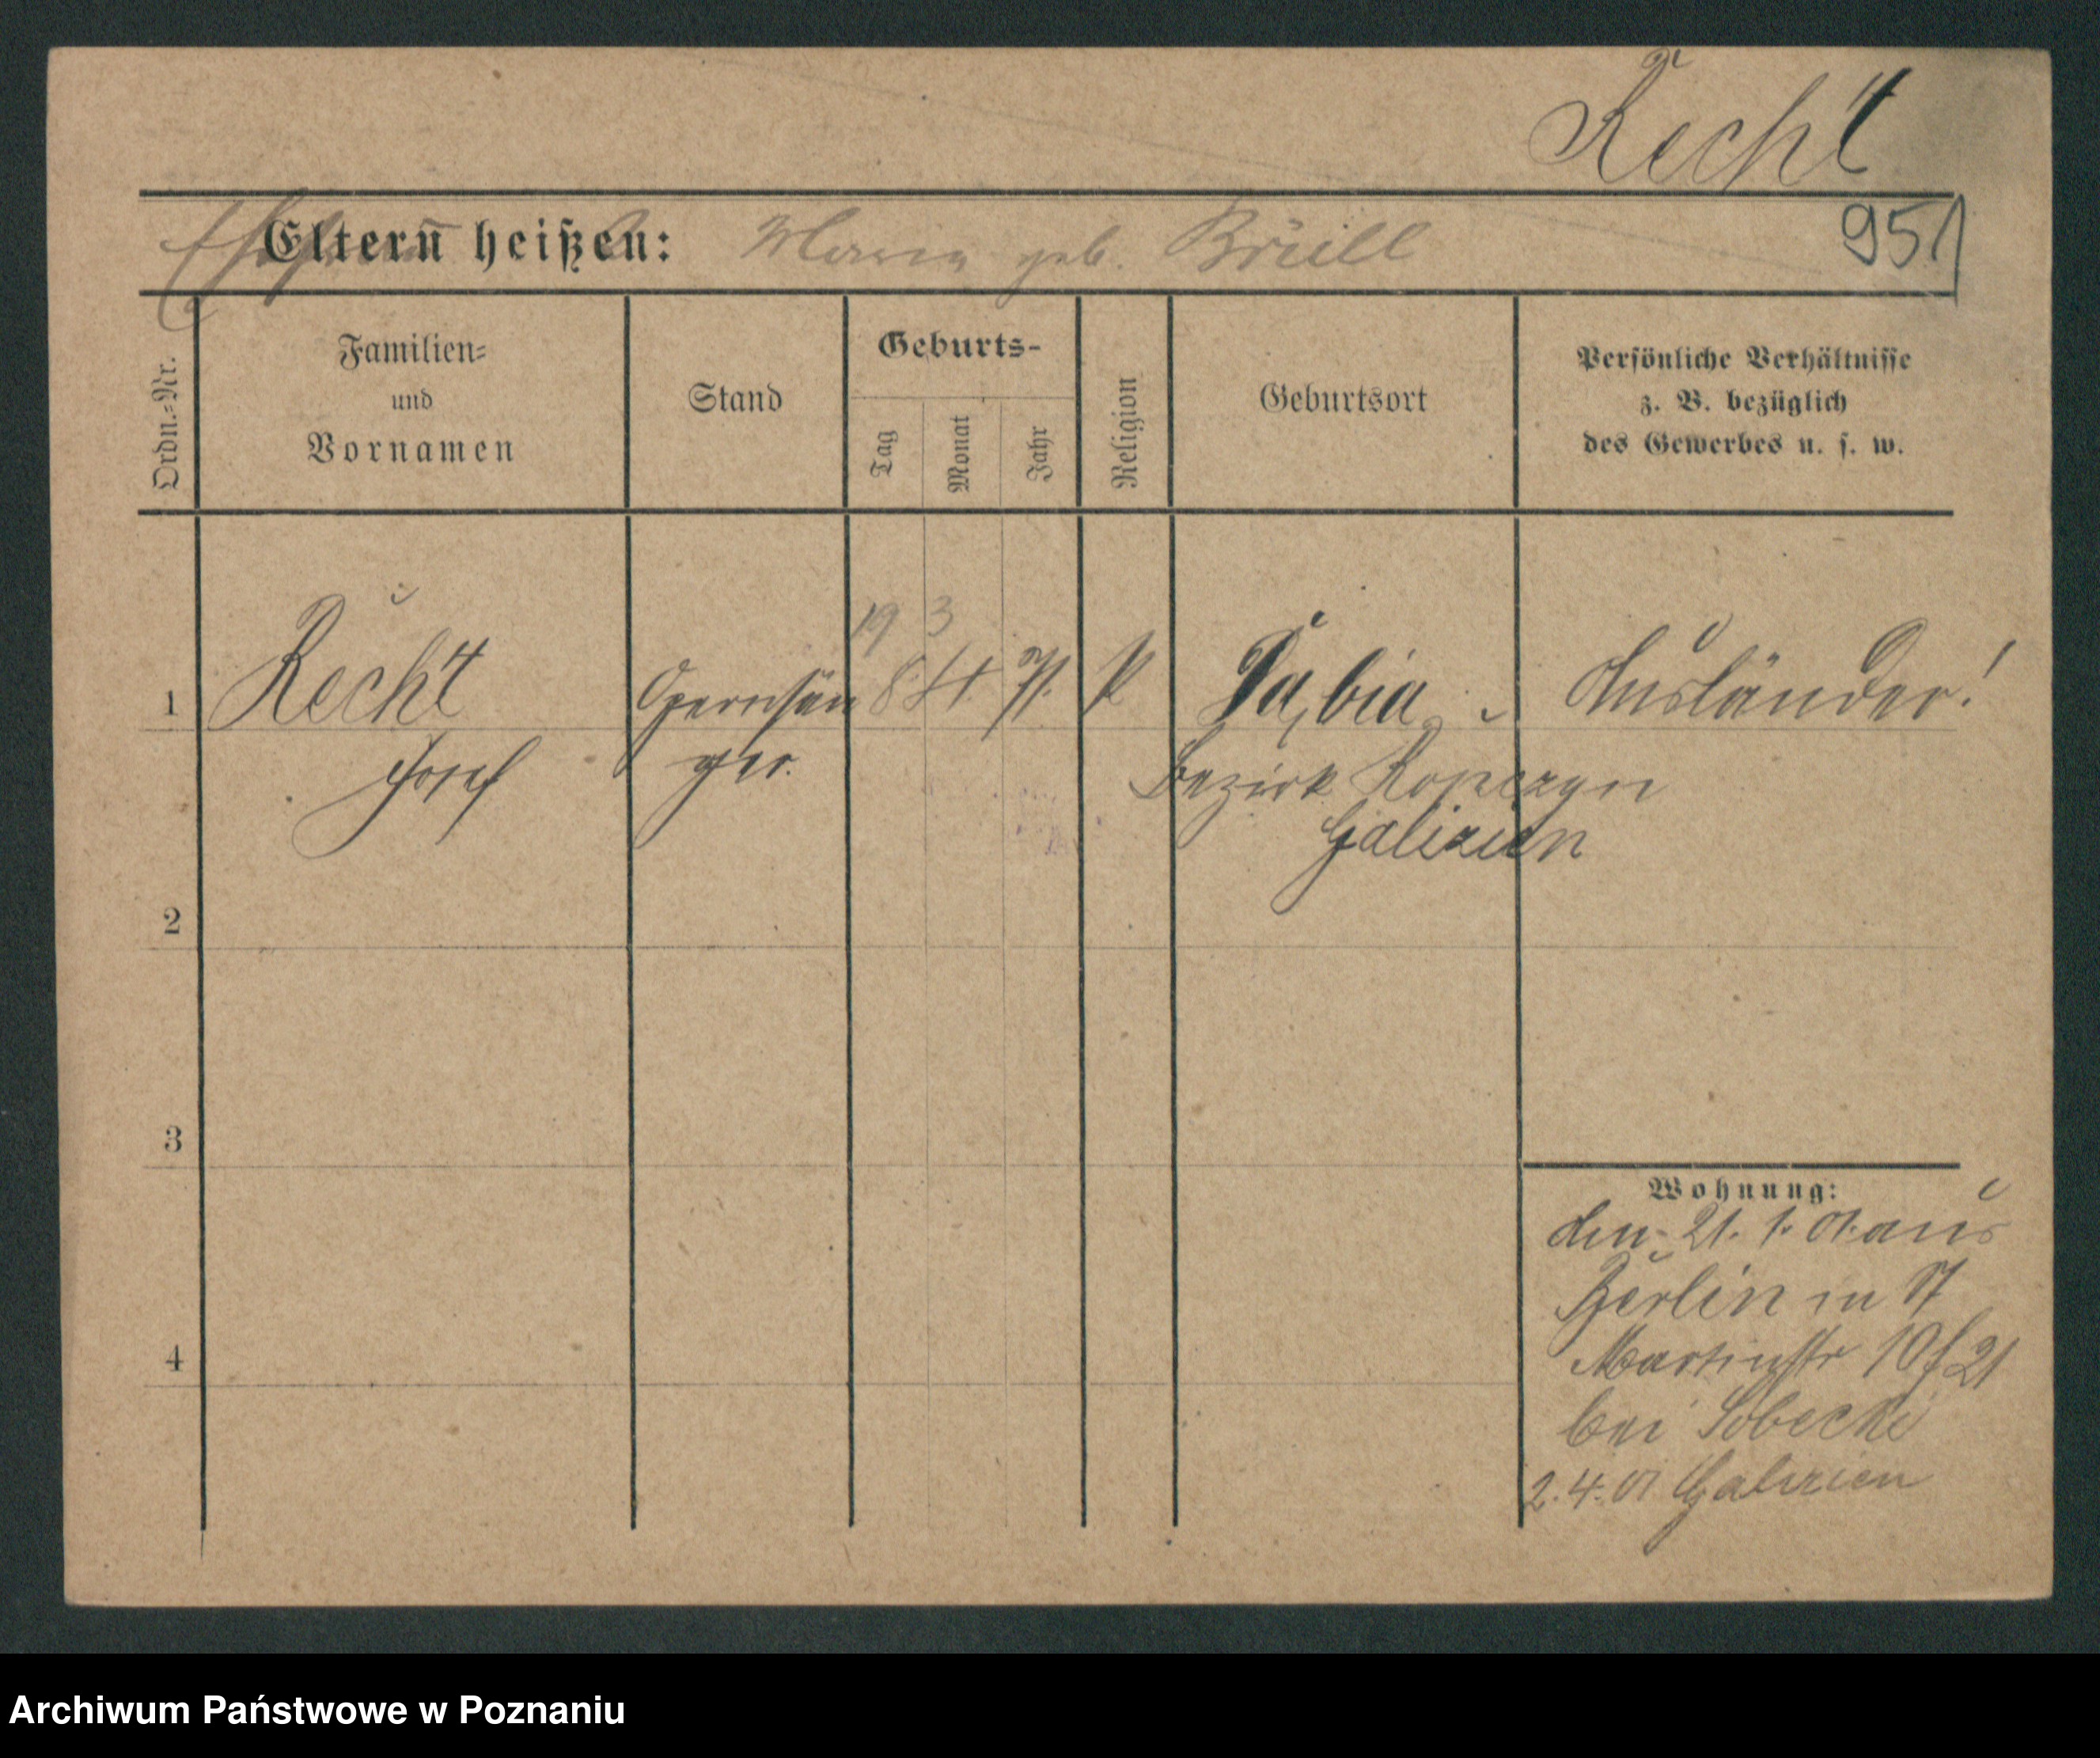 Recht
Eltern heißen: Maria geb. Brüll
951
Ordn.-Nr.
Familien-
und
Vornamen
Stand
Geburts-
Tag
Monat
Jahr
Religion
Geburtsort
Persönliche Verhältnisse
z. B. bezüglich
des Gewerbes u. s. w.
19 3
1 Recht Opernsän 8 4 71. k Dąbia Ausländer!
Josef ger. Bezirk Ropczyn
Galizien
2
3
4
Wohnung:
den 21. 1. 01. aus
Berlin in St
Martinstr 10/21
bei Sobecki
2. 4. 01 Galizien
Archiwum Państwowe w Poznaniu